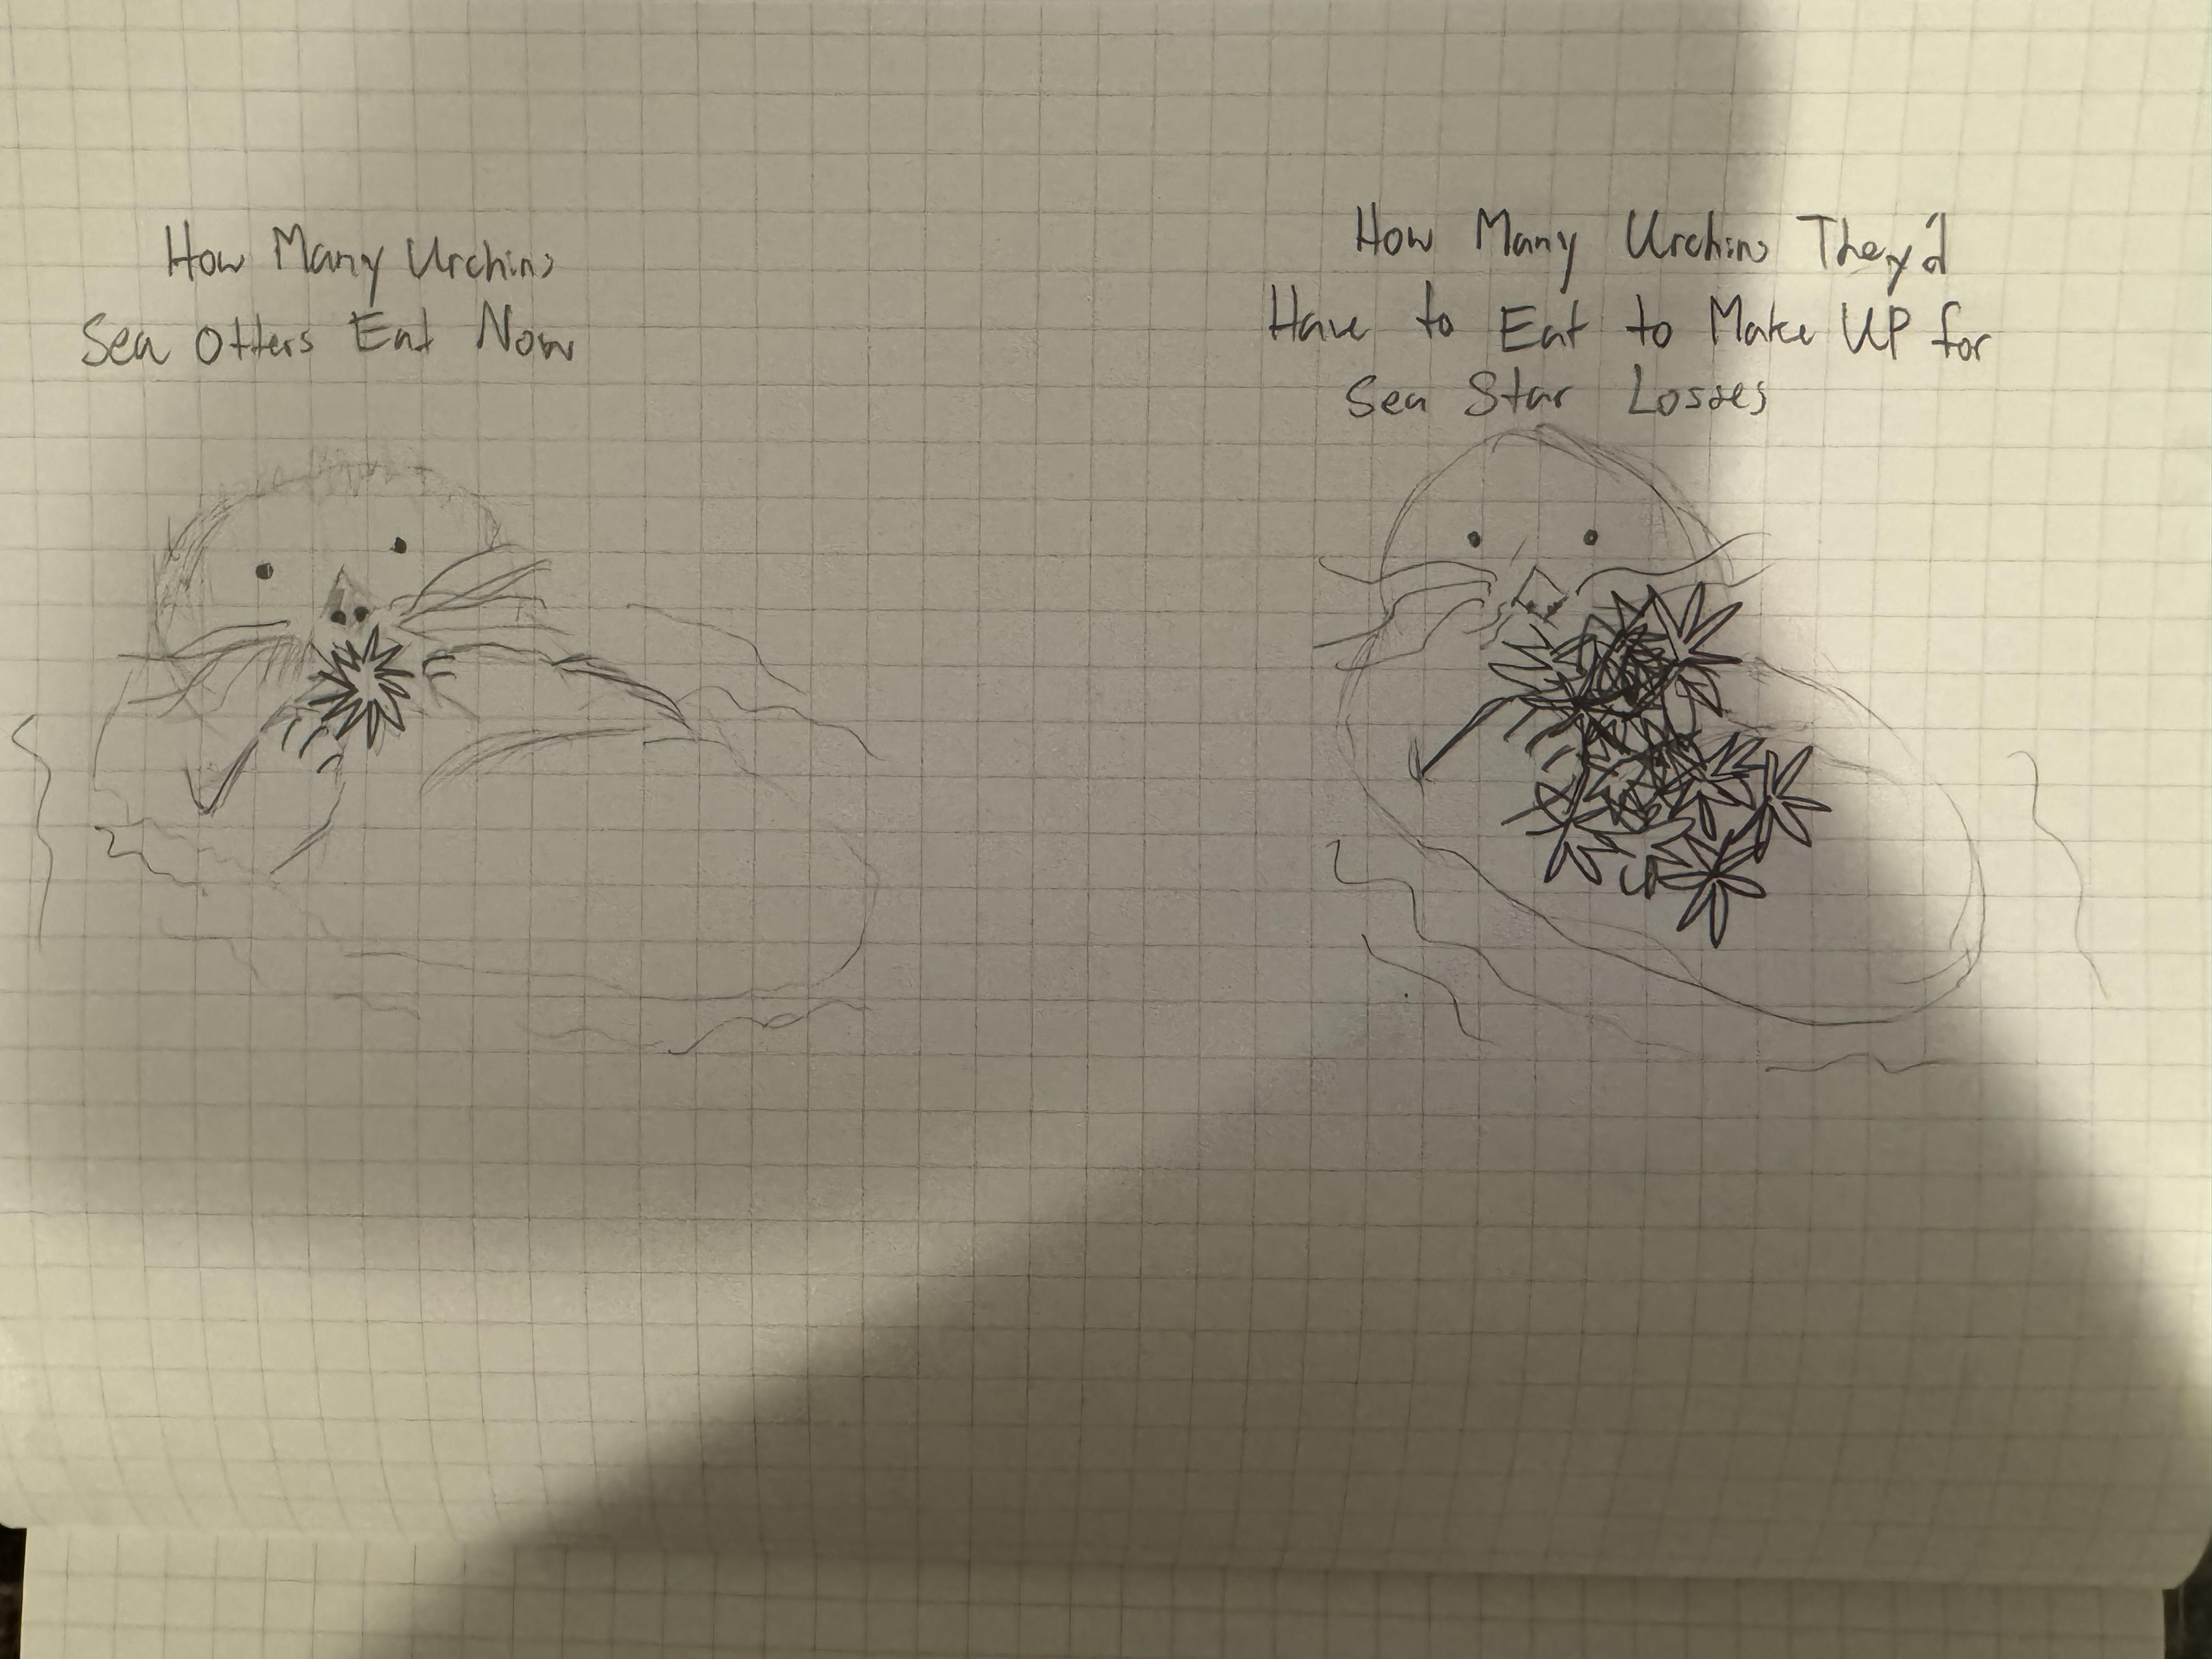 How Many Urchins
Sea Otters Eat Now
How Many Urchins They'd
Have to Eat to Make UP for
Sea Star Losses